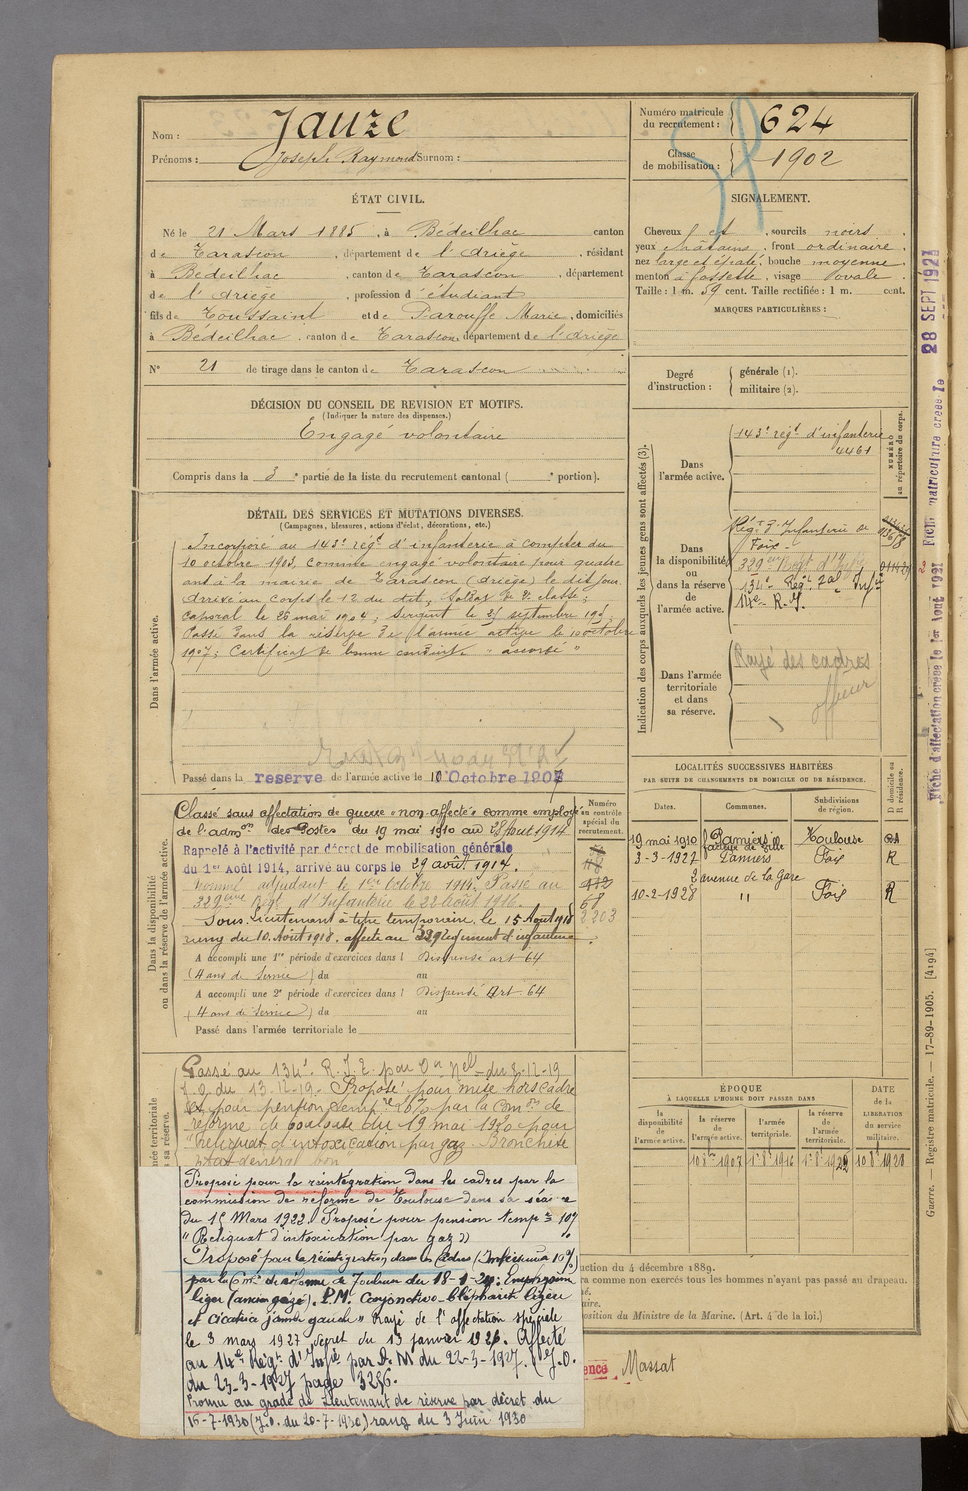 Nom : Jauze
Prénoms : Joseph Raymond Surnom :
Numéro matricule du recrutement : 624
Classe de mobilisation : 1902
ÉTAT CIVIL.
Né le 21 Mars 1885, à Bédeilhac canton
de Tarascon, département de l'Ariège, résidant
à Bédeilhac, canton de Tarascon, département
de l'Ariège, profession d'étudiant
fils de Toussaint et de Parouffe Marie, domiciliés
à Bédeilhac, canton de Tarascon, département de l'Ariège
N° 21 de tirage dans le canton de Tarascon
DÉCISION DU CONSEIL DE REVISION ET MOTIFS.
(Indiquer la nature des dispenses.)
Engagé volontaire
Compris dans la 3e partie de la liste du recrutement cantonal ( e portion).
SIGNALEMENT.
Cheveux et, sourcils noirs,
yeux châtains, front ordinaire,
nez large et épaté, bouche moyenne,
menton à fossette, visage ovale.
Taille : 1 m. 59 cent. Taille rectifiée : 1 m. cent.
MARQUES PARTICULIÈRES :
Degré d'instruction : générale (1).
militaire (2).
DÉTAIL DES SERVICES ET MUTATIONS DIVERSES.
(Campagnes, blessures, actions d'éclat, décorations, etc.)
Dans l'armée active.
Incorporé au 143e régt d'infanterie à compter du
10 octobre 1903, comme engagé volontaire pour quatre
ans à la mairie de Tarascon (Ariège) le dit jour.
Arrivé au corps le 12 du dit, soldat de 2e classe;
caporal le 26 mai 1904; sergent le 25 septembre 1905.
Passé dans la réserve de l'armée active le 10 octobre
1907; Certificat de bonne conduite "accordé"
Passé dans la reserve de l'armée active le 10 Octobre 1907
Indication des corps auxquels les jeunes gens sont affectés (3).
NUMÉRO au répertoire du corps.
Dans l'armée active.
143e régt d'infanterie
4461
Dans la disponibilité ou dans la réserve de l'armée active.
Régt d'Infanterie de
Foix
329ème Regt d'Infie
134e Régt d'Infie
14e R.I.
Dans l'armée territoriale et dans sa réserve.
Rayé des cadres
officier
Dans la disponibilité ou dans la réserve de l'armée active.
Classé sans affectation de guerre "non affecté" comme employé
de l'admon des Postes du 19 mai 1910 au 28 Aout 1914
Rappelé à l'activité par décret de mobilisation générale
du 1er Août 1914, arrivé au corps le 29 août 1914.
nommé adjudant le 1er Octobre 1914. Passé au
329ème Régt d'Infanterie le 22 Août 1916.
Sous-Lieutenant à titre temporaire, le 15 Août 1918
rang du 10 Août 1918, affecté au 329 Regiment d'infanterie
A accompli une 1re période d'exercices dans l Dispensé art 64
(4 ans de Service) du au
A accompli une 2e période d'exercices dans l Dispensé Art. 64
(4 ans de Service) du au
Passé dans l'armée territoriale le
Numéro au contrôle spécial du recrutement.
68
2203
LOCALITÉS SUCCESSIVES HABITÉES
PAR SUITE DE CHANGEMENTS DE DOMICILE OU DE RÉSIDENCE.
Dates. Communes. Subdivisions de région. D domicile ou R résidence.
19 mai 1910 Pamiers Toulouse
facteur de ville
3-3-1927 Pamiers Foix R
2 avenue de la Gare
10-2-1928 " Foix R
Passé au 134e R.I.
J.O. du 13-12-19. Proposé pour mise hors cadre
et pour pension temp re 20% par la Comon de
réforme de Toulouse du 19 mai 1920 pour
"reliquat d'intoxication par gaz. Bronchite
Etat général bon
Proposé pour la réintégration dans les cadres par la
commission de réforme de Toulouse dans sa séance
du 15 Mars 1922. Proposé pour pension temp re 10%
"Reliquat d'intoxication par gaz"
Proposé pour la réintégration dans les Cadres (Inf. 10%)
par la Com. de réforme de Toulouse du 18-1-24: Emphysème
léger (ancien gazé). P.M. Conjonctivo-blépharite légère
et cicatrice jambe gauche" Rayé de l'affectation spéciale
le 3 mars 1927 décret du 13 janvier 1926. Affecté
au 14e Régt d'Infie par D.M du 22-3-1927. J.O.
du 23-3-1927 page 3286.
Promu au grade de Lieutenant de réserve par décret du
16-7-1930 (J.O. du 20-7-1930) rang du 3 Juin 1930
ÉPOQUE
À LAQUELLE L'HOMME DOIT PASSER DANS
la disponibilité de l'armée active. la réserve de l'armée active. l'armée territoriale. la réserve de l'armée territoriale.
DATE de la LIBERATION du service militaire.
10 8bre 1907
uction du 4 décembre 1889.
ra comme non exercés tous les hommes n'ayant pas passé au drapeau.
position du Ministre de la Marine. (Art. 4 de la loi.)
ence Massat
Guerre. — Registre matricule. — 17-89-1905. [4194]
Fiche d'affectation créée le 1er Août 1921
Fiche matriculaire créée le 28 SEPT 1921